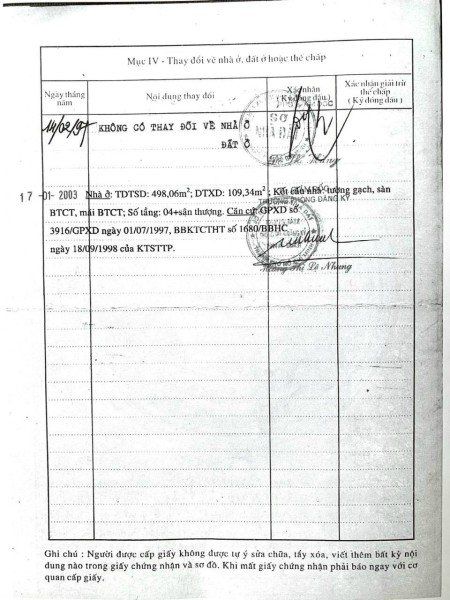 Mục IV - Thay đổi về nhà ở, đất ở hoặc thế chấp
Ngày tháng năm
Nội dung thay đổi
Xác nhận
( Ký đóng dấu )
Xác nhận giải trừ
thế chấp
( Ký đóng dấu )
14/02/97 KHÔNG CÓ THAY ĐỔI VỀ NHÀ Ở
ĐẤT Ở
SỞ
NHÀ ĐẤT
17 -01- 2003 Nhà ở: TDTSD: 498,06m²; DTXD: 109,34m²; Kết cấu nhà: tường gạch, sàn
BTCT, mái BTCT; Số tầng: 04+sân thượng. Căn cứ: GPXD số
3916/GPXD ngày 01/07/1997, BBKTCTHT số 1680/BBHC
ngày 18/09/1998 của KTSTTP.
TRƯỞNG PHÒNG ĐĂNG KÝ
Nhung
Ghi chú : Người được cấp giấy không được tự ý sửa chữa, tẩy xóa, viết thêm bất kỳ nội
dung nào trong giấy chứng nhận và sơ đồ. Khi mất giấy chứng nhận phải báo ngay với cơ
quan cấp giấy.